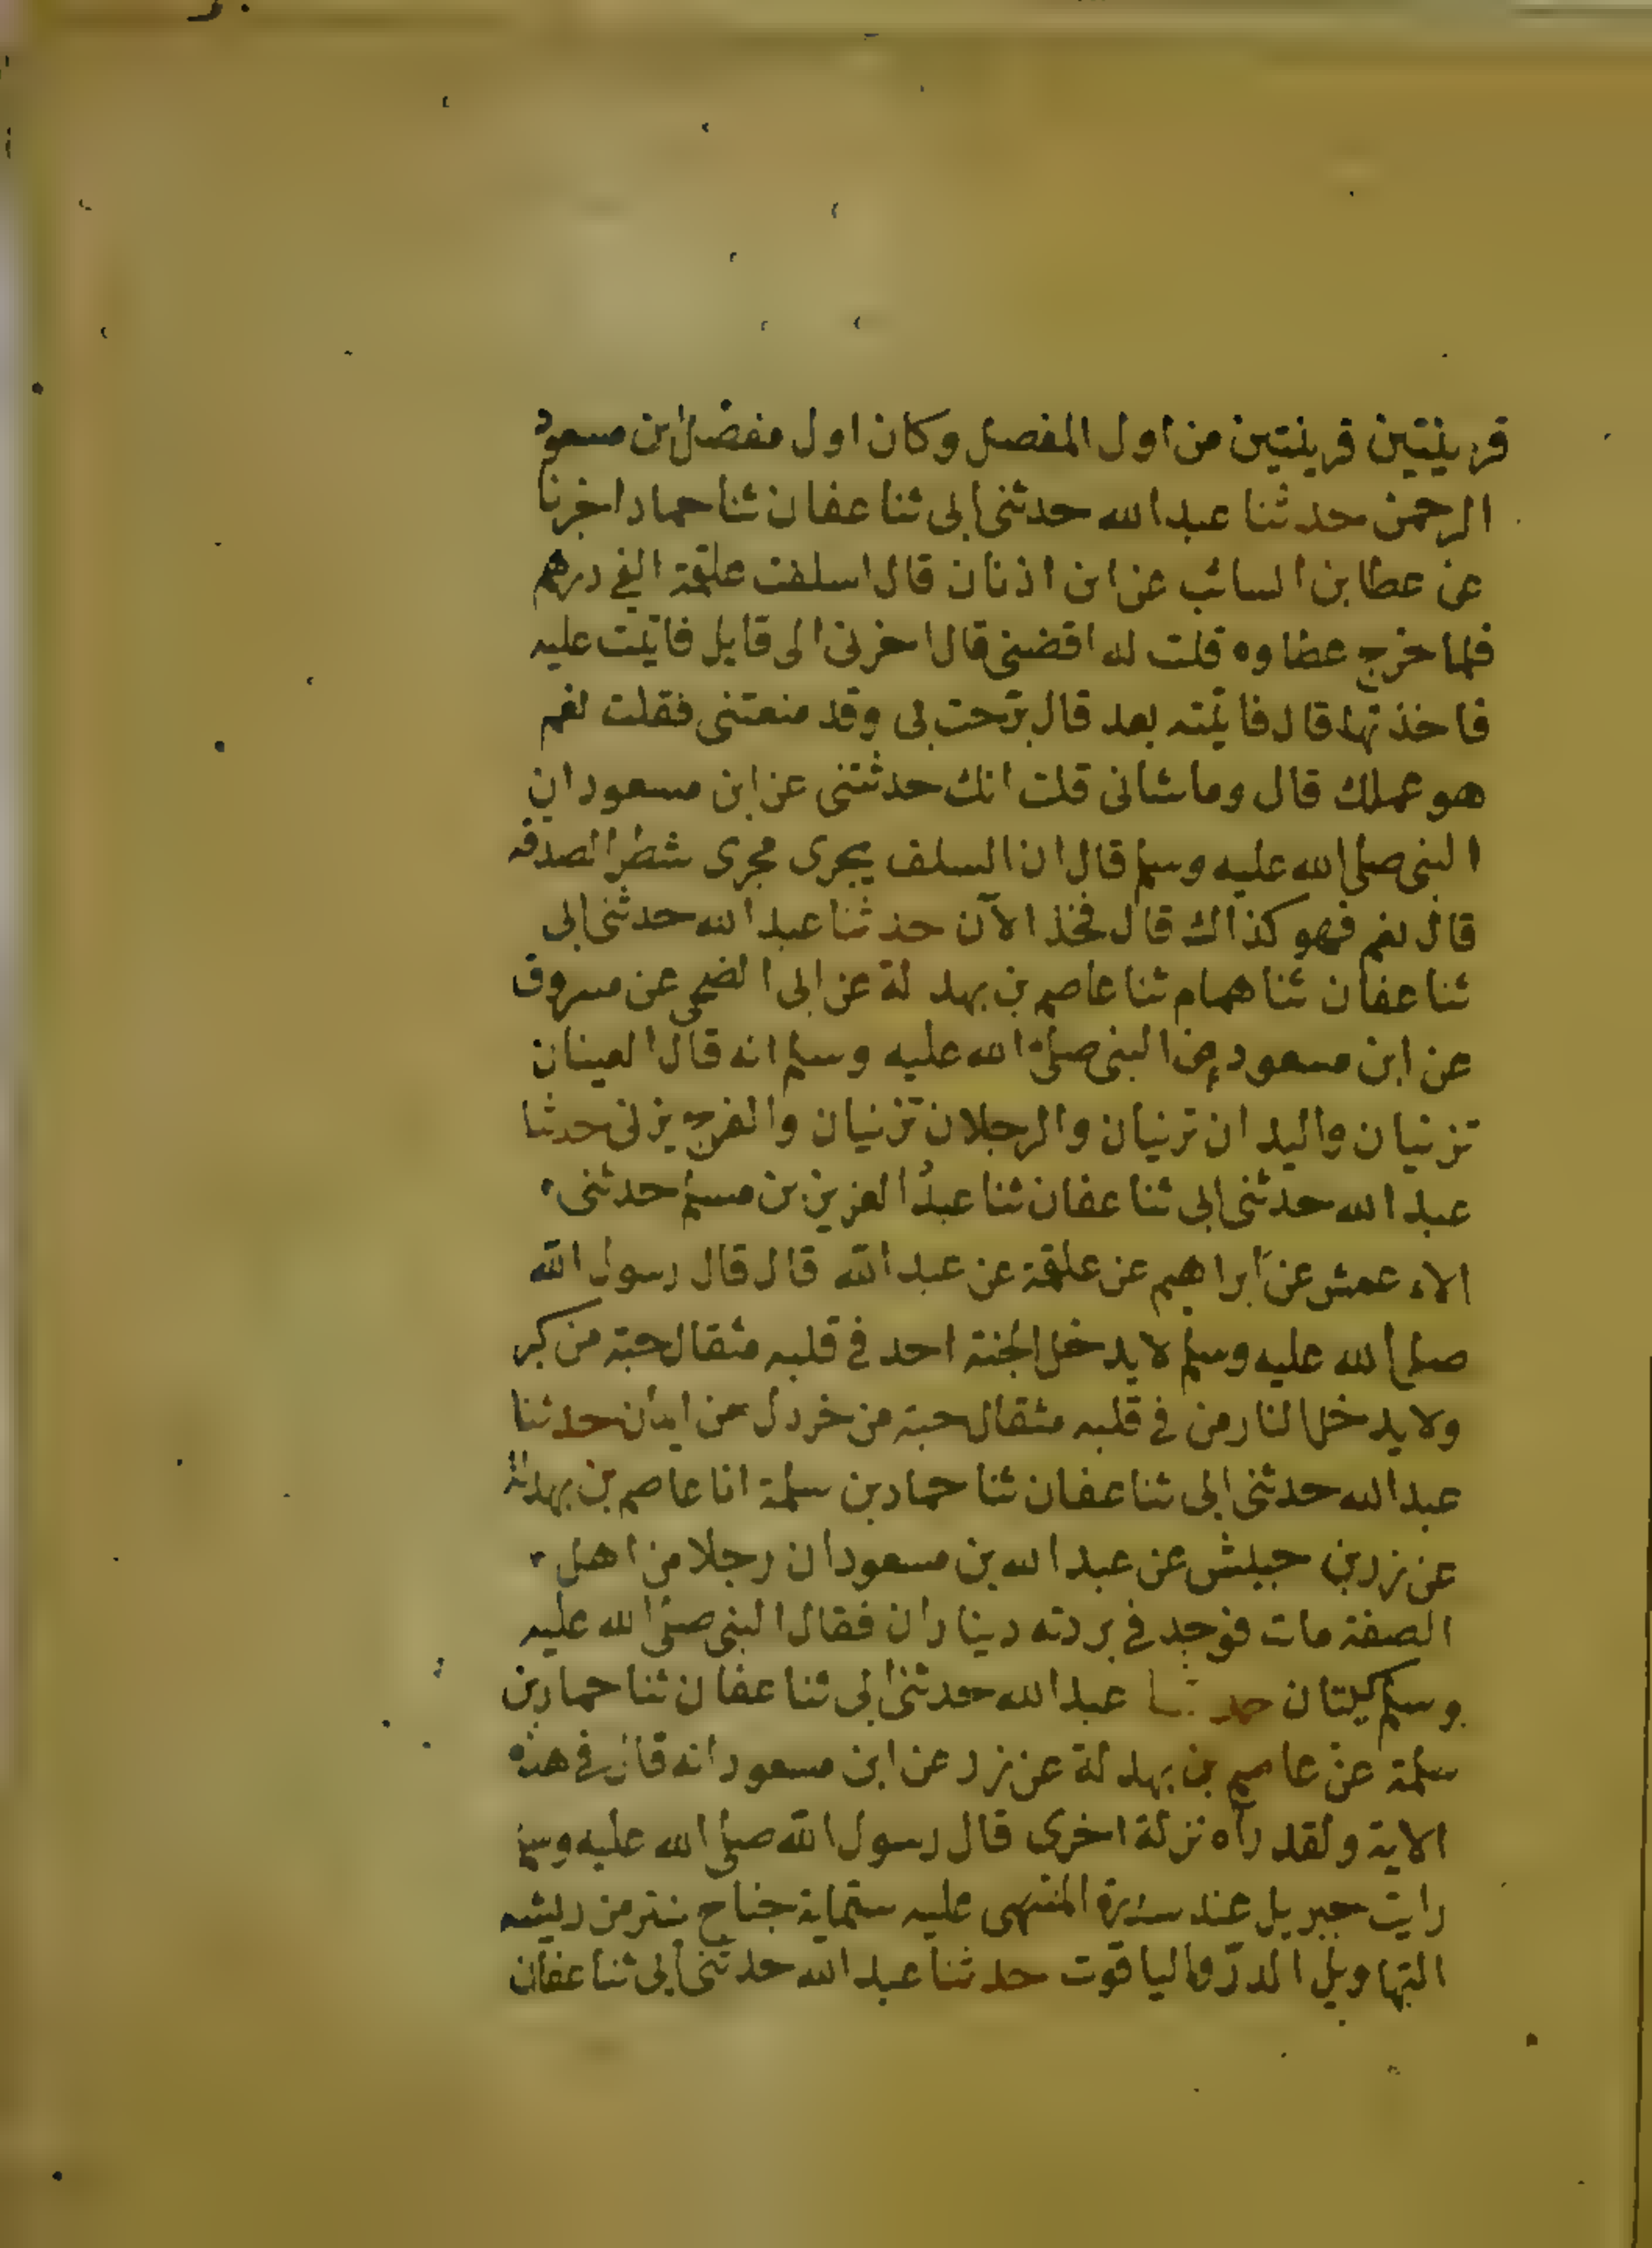 قرينتين قرينتين من اول المفصل وكان اول مفصل ابن مسعود
الرحمن حدثنا عبد الله حدثنى ابى ثنا عفان ثنا حماد اخبرنا
عن عطا بن السائب عن ابن اذنان قال اسلفت علقمة الفي درهم
فلما خرج عطاوه قلت له اقضنى قال اخرنى الى قابل فاتيت عليه
فاخذتها قال فاتيته بعد قال برحت بى وقد منعتنى فقلت نعم
هو عملك قال وما شانى قلت انك حدثتنى عن ابن مسعود ان
النبى صلى الله عليه وسلم قال ان السلف يجرى مجرى شطر الصدقه
قال نعم فهو كذاك قال فخذ الآن حدثنا عبد الله حدثنى ابى
ثنا عفان ثنا همام ثنا عاصم بن بهدلة عن ابى الضحى عن مسروق
عن ابن مسعود عن النبى صلى الله عليه وسلم انه قال العينان
تزنيان واليدان تزنيان والرجلان تزنيان والفرج يزنى حدثنا
عبد الله حدثنى ابى ثنا عفان ثنا عبد العزيز بن مسلم حدثنى
الاعمش عن ابراهيم عن علقمة عن عبد الله قال قال رسول الله
صلى الله عليه وسلم لا يدخل الجنة احد في قلبه مثقال حبة من كبر
ولا يدخل النار من في قلبه مثقال حبة من خردل من ايمان حدثنا
عبد الله حدثنى ابى ثنا عفان ثنا حماد بن سلمة انا عاصم بن بهدلة
عن زر بن حبيش عن عبد الله بن مسعود ان رجلا من اهل
الصفة مات فوجد في بردته ديناران فقال النبى صلى الله عليه
وسلم كيتان حدثنا عبد الله حدثنى ابى ثنا عفان ثنا حماد بن
سلمة عن عاصم بن بهدلة عن زر عن ابن مسعود انه قال في هذه
الاية ولقد رآه نزلة اخرى قال رسول الله صلى الله عليه وسلم
رايت جبريل عند سدرة المنتهى عليه ستماية جناح ينثر من ريشه
التهاويل الدر والياقوت حدثنا عبد الله حدثنى ابى ثنا عفان